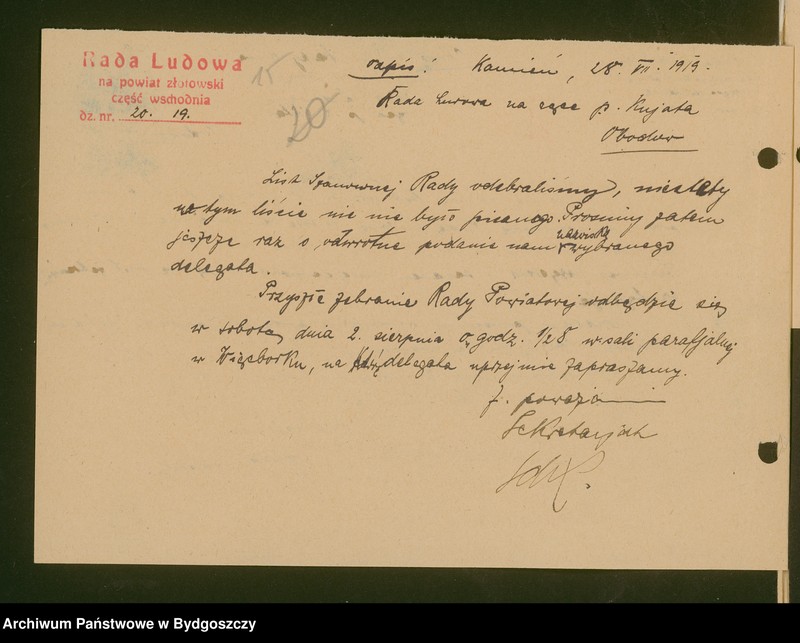 Rada Ludowa
na powiat złotowski
część wschodnia
dz. nr. 20. 19.
odpis! Kamień, 28. VII. 1919.
Rada Ludowa na ręce p. Kujata
Obodowo
List Szanownej Rady odebraliśmy, niestety
w tym liście nic nie było pisanego. Prosimy zatem
jeszcze raz o odwrotne podanie nam nazwiska wybranego
delegata.
Przyszłe zebranie Rady Powiatowej odbędzie się
w sobotę dnia 2. sierpnia o godz. 1/2 8 w sali parafjalnej
w Więcborku, na które delegata uprzejmie zapraszamy.
Z poważaniem
Sekretarjat
Archiwum Państwowe w Bydgoszczy